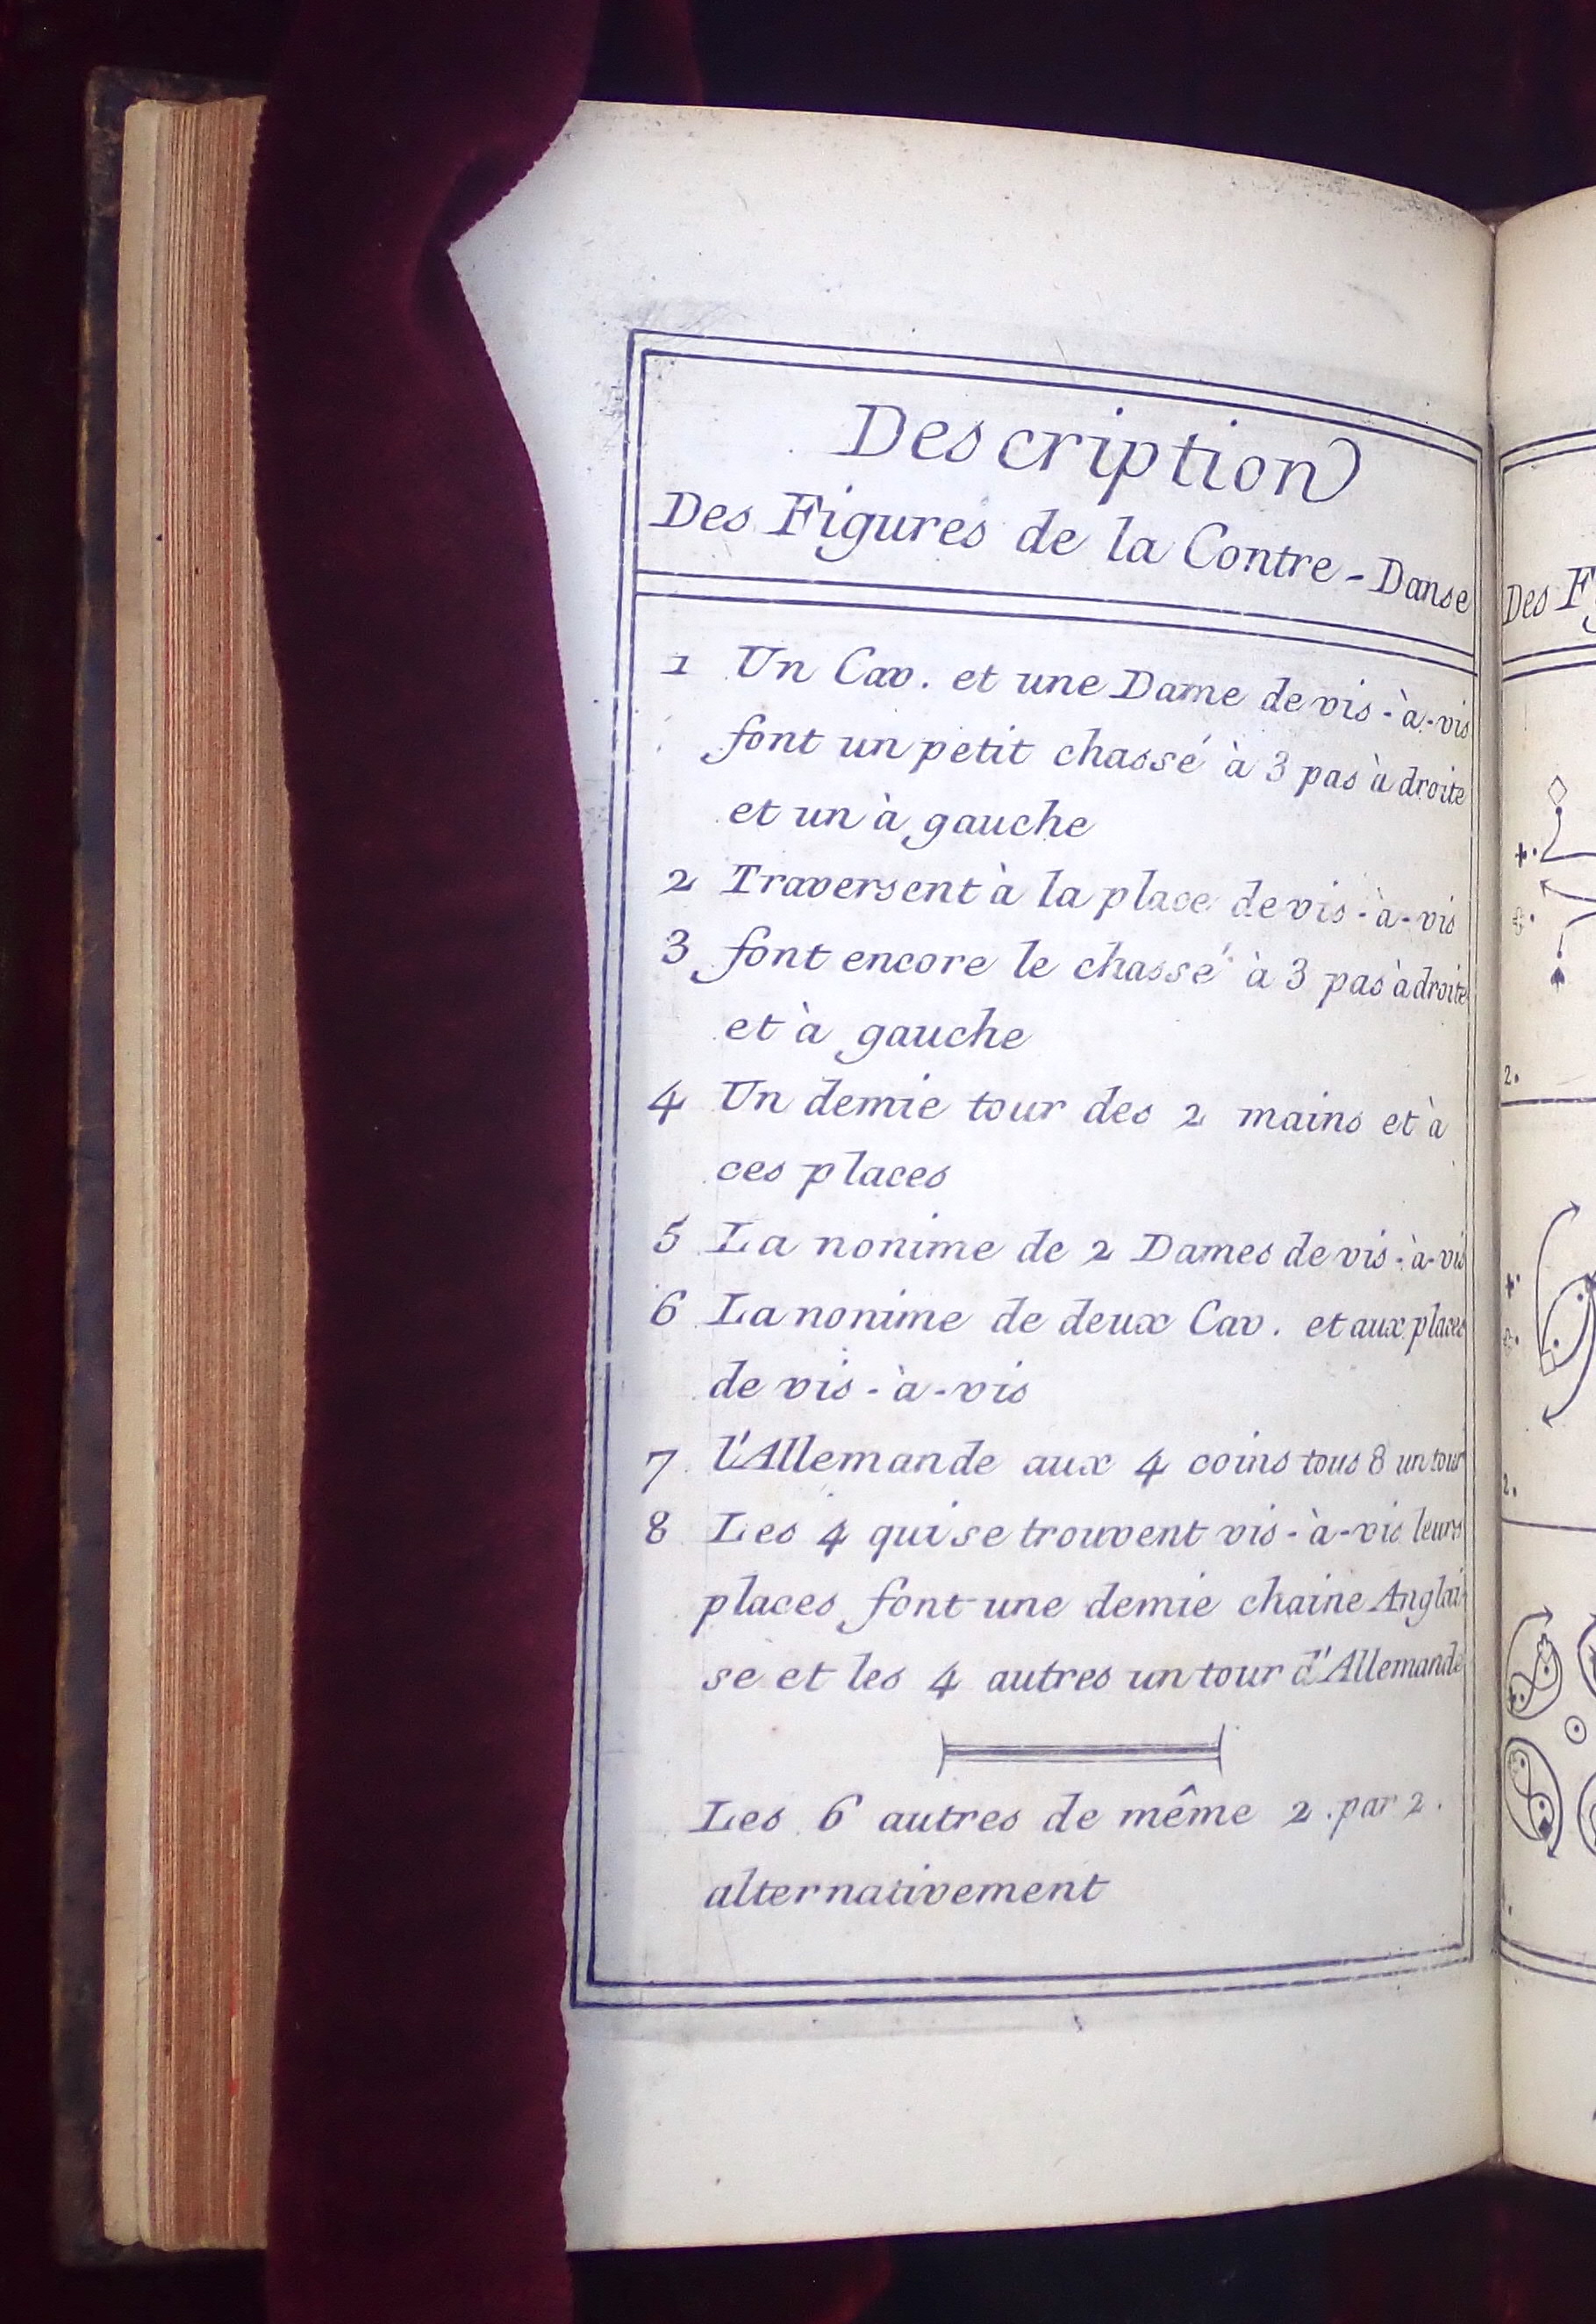 Description
Des Figures de la Contre-Danse
1 Un Cav. et une Dame de vis-à-vis
font un petit chassé à 3 pas à droite
et un à gauche
2 Traversent à la place de vis-à-vis
3 font encore le chassé à 3 pas à droite
et à gauche
4 Un demie tour des 2 mains et à
ces places
5 La nonime de 2 Dames de vis-à-vis
6 La nonime de deux Cav. et aux places
de vis-à-vis
7 l'Allemande aux 4 coins tous 8 un tour
8 Les 4 qui se trouvent vis-à-vis leurs
places font une demie chaine Anglai-
se et les 4 autres un tour d'Allemande
Les 6 autres de même 2 par 2.
alternativement
Des F
2.
2.